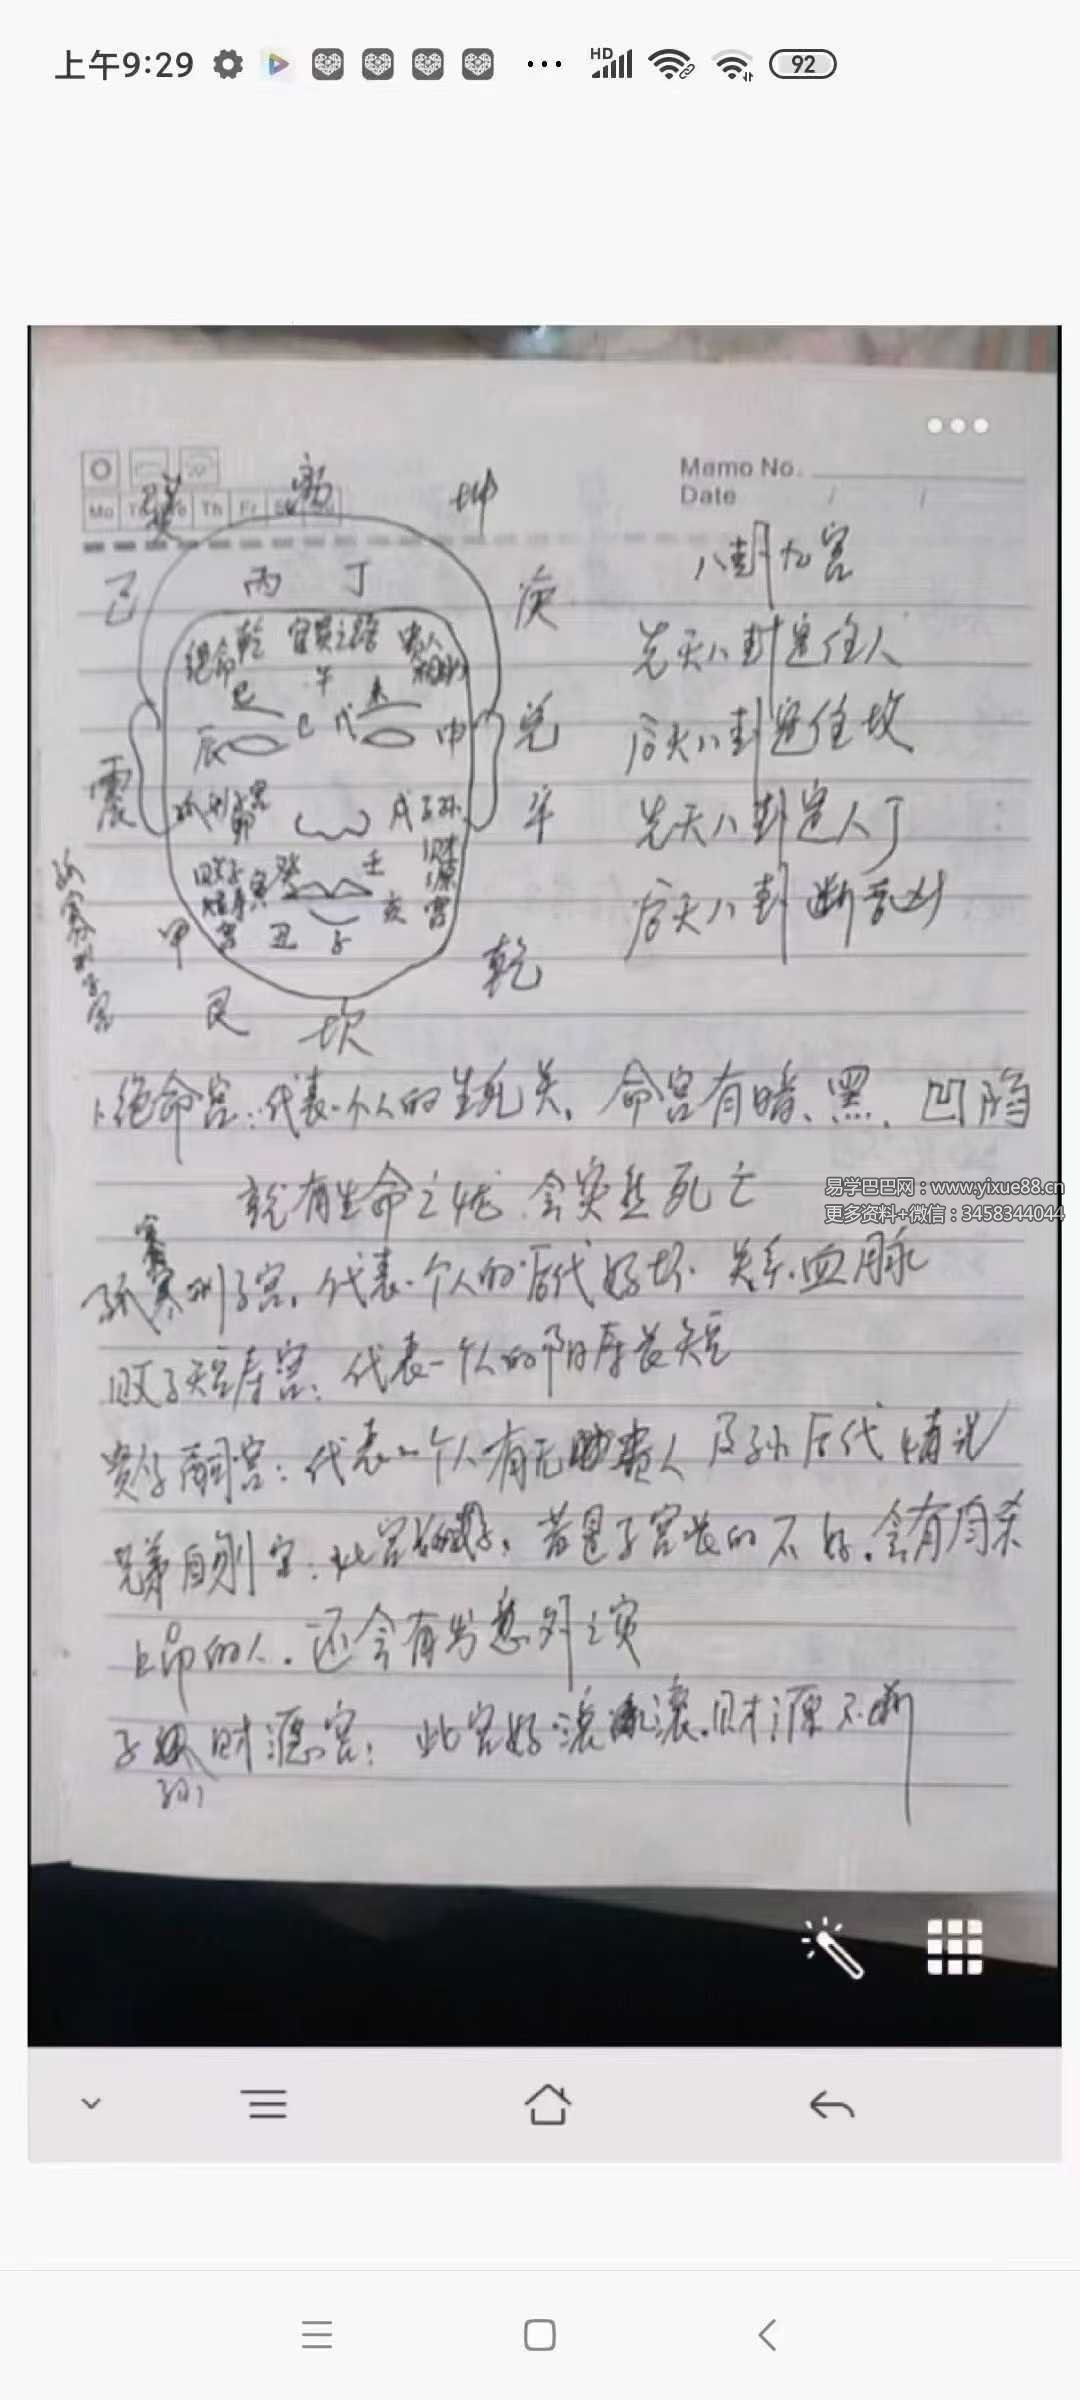 上午9:29
HD
92
Memo No.
Date / /
Mo Th Fr
巽 离 坤
己 丙 丁 庚
八卦九宫
绝命 乾 官贵之路 贵人
巳 午 未
先天八卦定住人
辰 己 戊 申 兑
后天八卦定住坟
震 孤刑 卯 戌 子孙 辛
先天八卦定人丁
寅 癸 壬 财源宫
甲 丑 子 亥 乾
后天八卦断吉凶
孤寡刑子宫
艮 坎
1.绝命宫:代表一个人的生死关,命宫有暗、黑、凹陷
就有生命之忧.会突然死亡
易学巴巴网:www.yixue88.cn
更多资料+微信:3458344044
寡
孤寡刑子宫,代表一个人的后代好坏 关系血脉
败子短寿宫:代表一个人的阳寿长短
贵子嗣宫:代表一个人有无贵人及子孙后代情况
兄弟自刎宫:此宫若是子宫长的不好.会有自杀
上吊的人.还会有意外之灾
子财源宫:此宫好滚滚.财源不断
孙